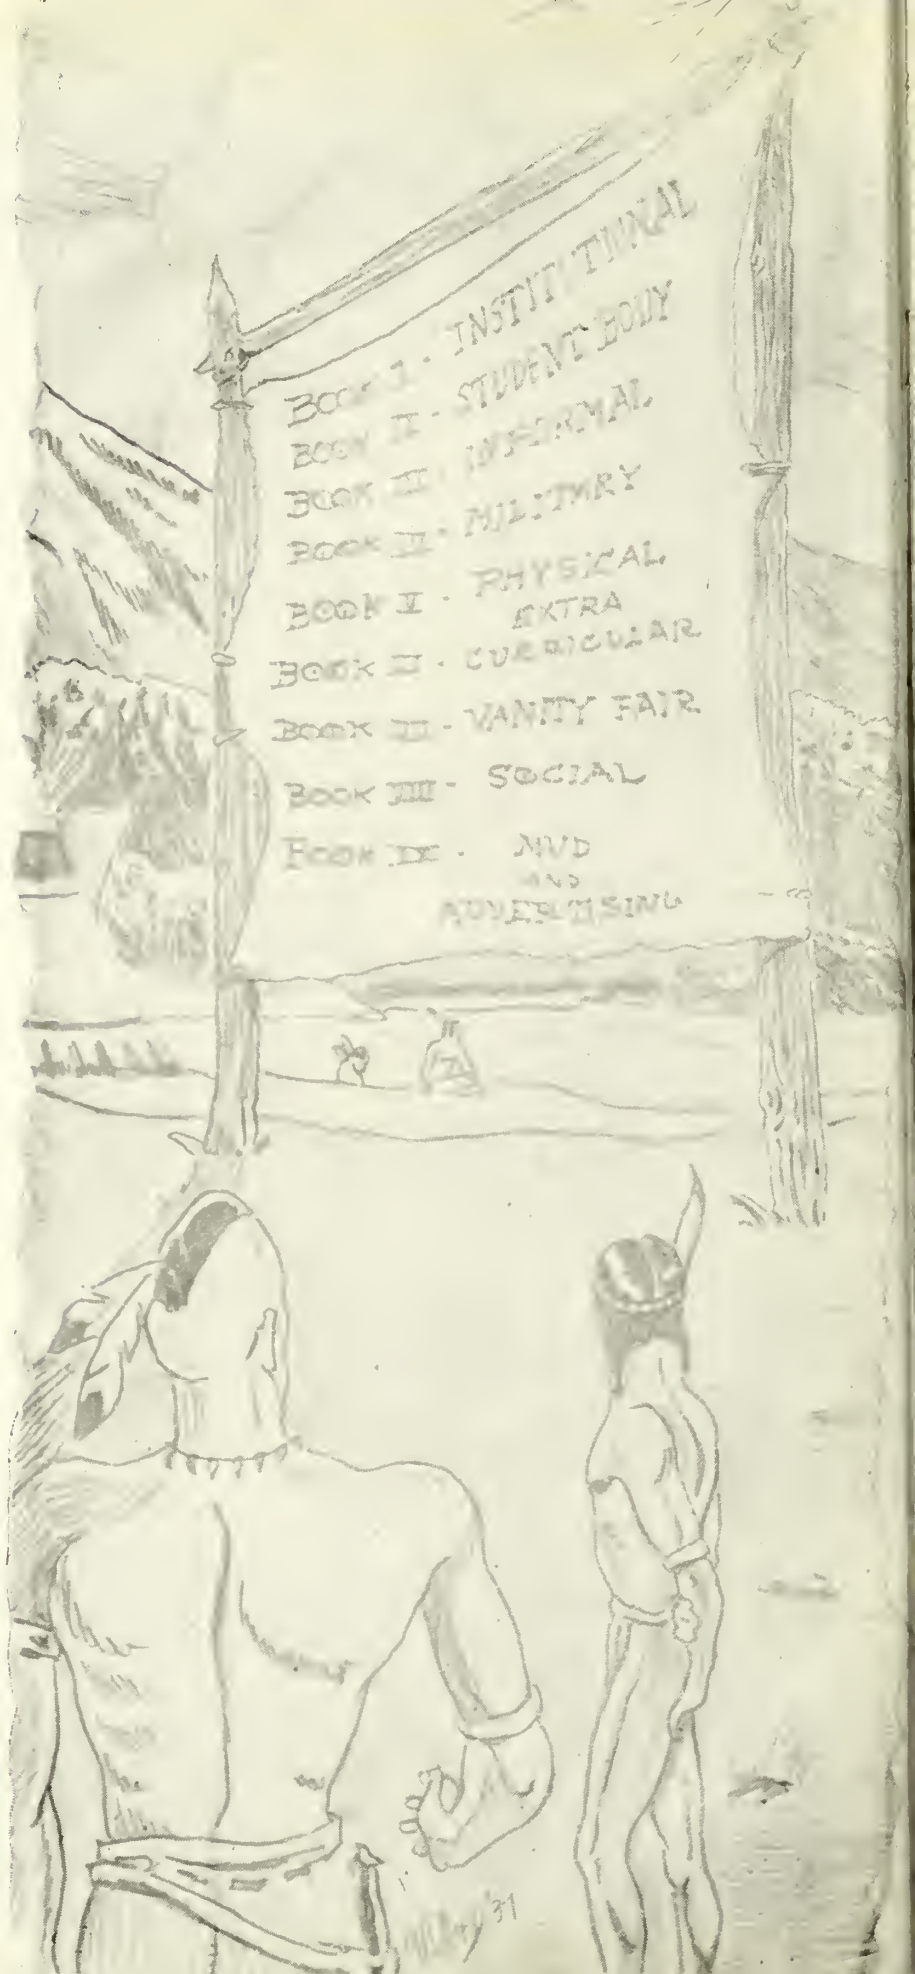 BOOK I - INSTITUTIONAL
BOOK II - STUDENT BODY
BOOK III - INFORMAL
BOOK IV - MILITARY
BOOK V - PHYSICAL
EXTRA
BOOK VI - CURRICULAR
BOOK VII - VANITY FAIR
BOOK VIII - SOCIAL
BOOK IX - MUD
AND
ADVERTISING
'37